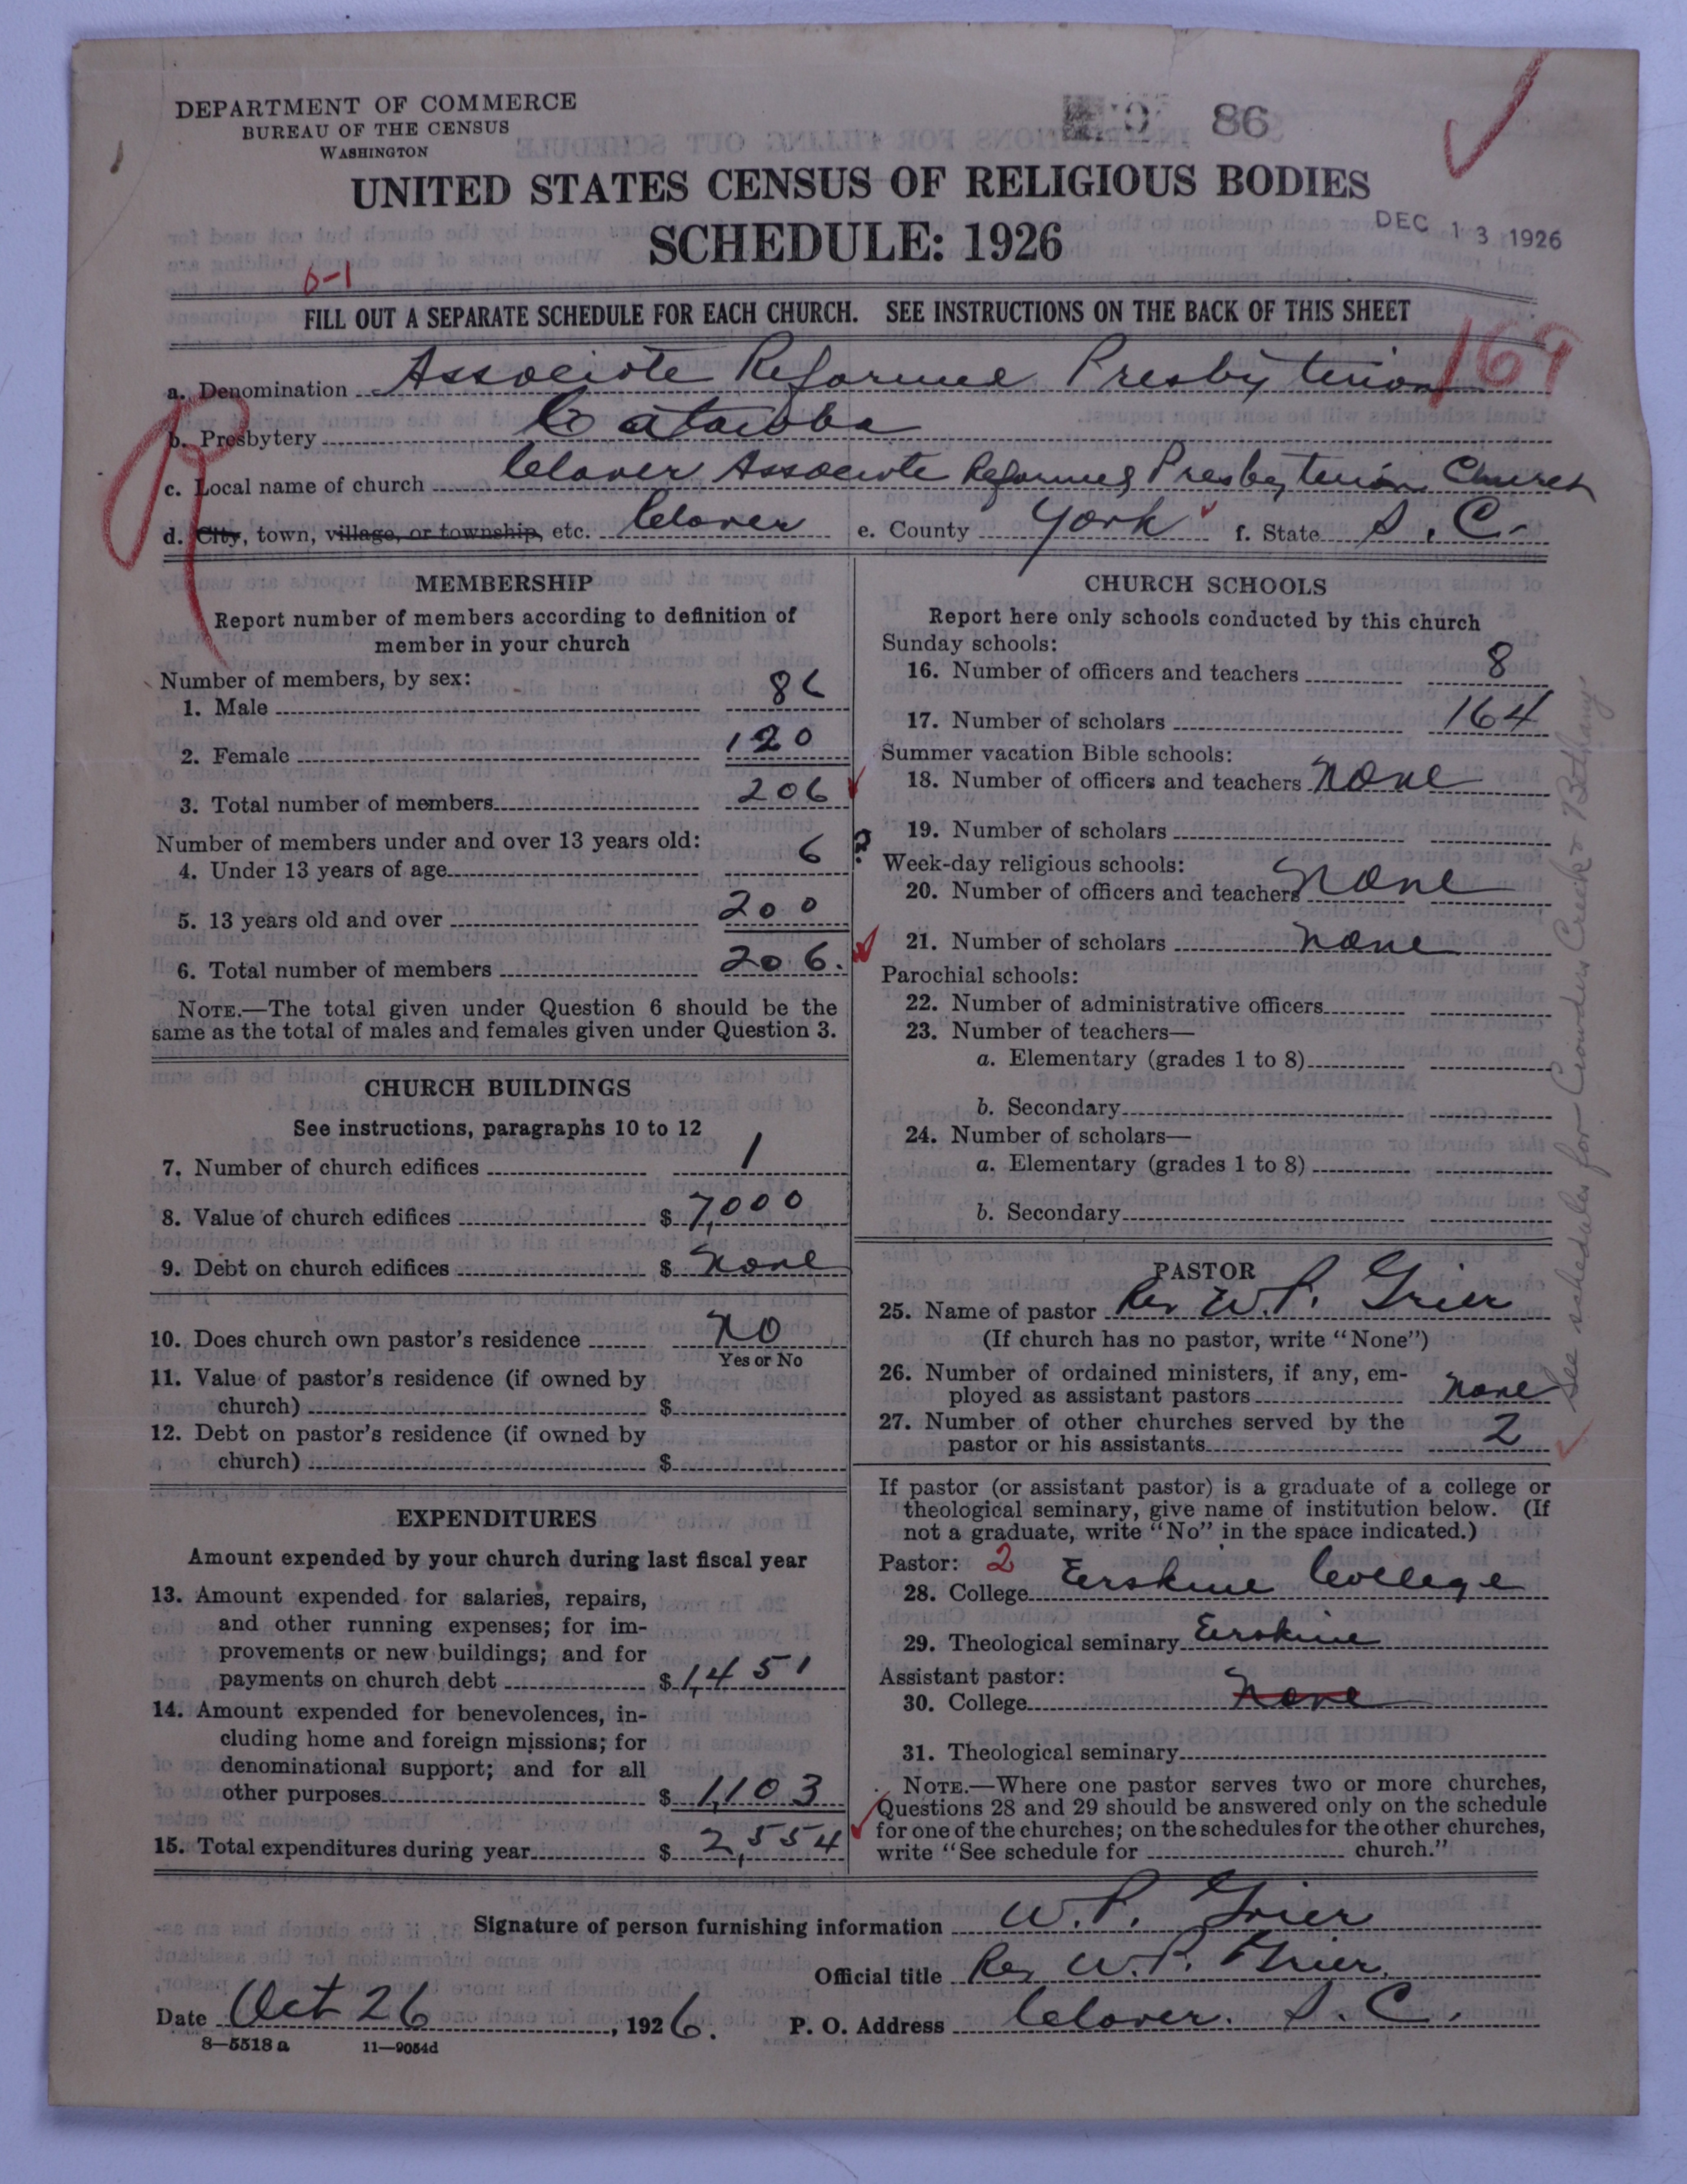 DEPARTMENT OF COMMERCE
BUREAU OF THE CENSUS
WASHINGTON
86
UNITED STATES CENSUS OF RELIGIOUS BODIES
SCHEDULE: 1926
DEC 13 1926
6-1
FILL OUT A SEPARATE SCHEDULE FOR EACH CHURCH. SEE INSTRUCTIONS ON THE BACK OF THIS SHEET
169
a. Denomination Associate Reforme Presbyterian
b. Presbytery Catawba
c. Local name of church Clover Associate Reformed Presbyterian Church
d. City, town, village, or township, etc. Clover e. County York f. State S. C.
R
MEMBERSHIP
Report number of members according to definition of
member in your church
Number of members, by sex:
1. Male 86
2. Female 120
3. Total number of members 206
Number of members under and over 13 years old:
4. Under 13 years of age 6 ?
5. 13 years old and over 200
6. Total number of members 206.
NOTE.—The total given under Question 6 should be the
same as the total of males and females given under Question 3.
CHURCH BUILDINGS
See instructions, paragraphs 10 to 12
7. Number of church edifices 1
8. Value of church edifices $ 7,000
9. Debt on church edifices $ none
10. Does church own pastor's residence No
Yes or No
11. Value of pastor's residence (if owned by
church) $
12. Debt on pastor's residence (if owned by
church) $
EXPENDITURES
Amount expended by your church during last fiscal year
13. Amount expended for salaries, repairs,
and other running expenses; for im-
provements or new buildings; and for
payments on church debt $ 1,451
14. Amount expended for benevolences, in-
cluding home and foreign missions; for
denominational support; and for all
other purposes $ 1,103
15. Total expenditures during year $ 2,554
CHURCH SCHOOLS
Report here only schools conducted by this church
Sunday schools:
16. Number of officers and teachers 8
17. Number of scholars 164
Summer vacation Bible schools:
18. Number of officers and teachers none
19. Number of scholars
Week-day religious schools:
20. Number of officers and teachers none
21. Number of scholars none
Parochial schools:
22. Number of administrative officers
23. Number of teachers—
a. Elementary (grades 1 to 8)
b. Secondary
24. Number of scholars—
a. Elementary (grades 1 to 8)
b. Secondary
PASTOR
25. Name of pastor Rev W. P. Grier
(If church has no pastor, write "None")
26. Number of ordained ministers, if any, em-
ployed as assistant pastors none
27. Number of other churches served by the
pastor or his assistants 2
See schedules for Crowders Creek & Bethany
If pastor (or assistant pastor) is a graduate of a college or
theological seminary, give name of institution below. (If
not a graduate, write "No" in the space indicated.)
Pastor: 2
28. College Erskine College
29. Theological seminary Erskine
Assistant pastor:
30. College none
31. Theological seminary
NOTE.—Where one pastor serves two or more churches,
Questions 28 and 29 should be answered only on the schedule
for one of the churches; on the schedules for the other churches,
write "See schedule for church."
Signature of person furnishing information W. P. Grier
Official title Rev W. P. Grier.
Date Oct 26, 1926. P. O. Address Clover. S. C.
8—5518 a 11—9054d